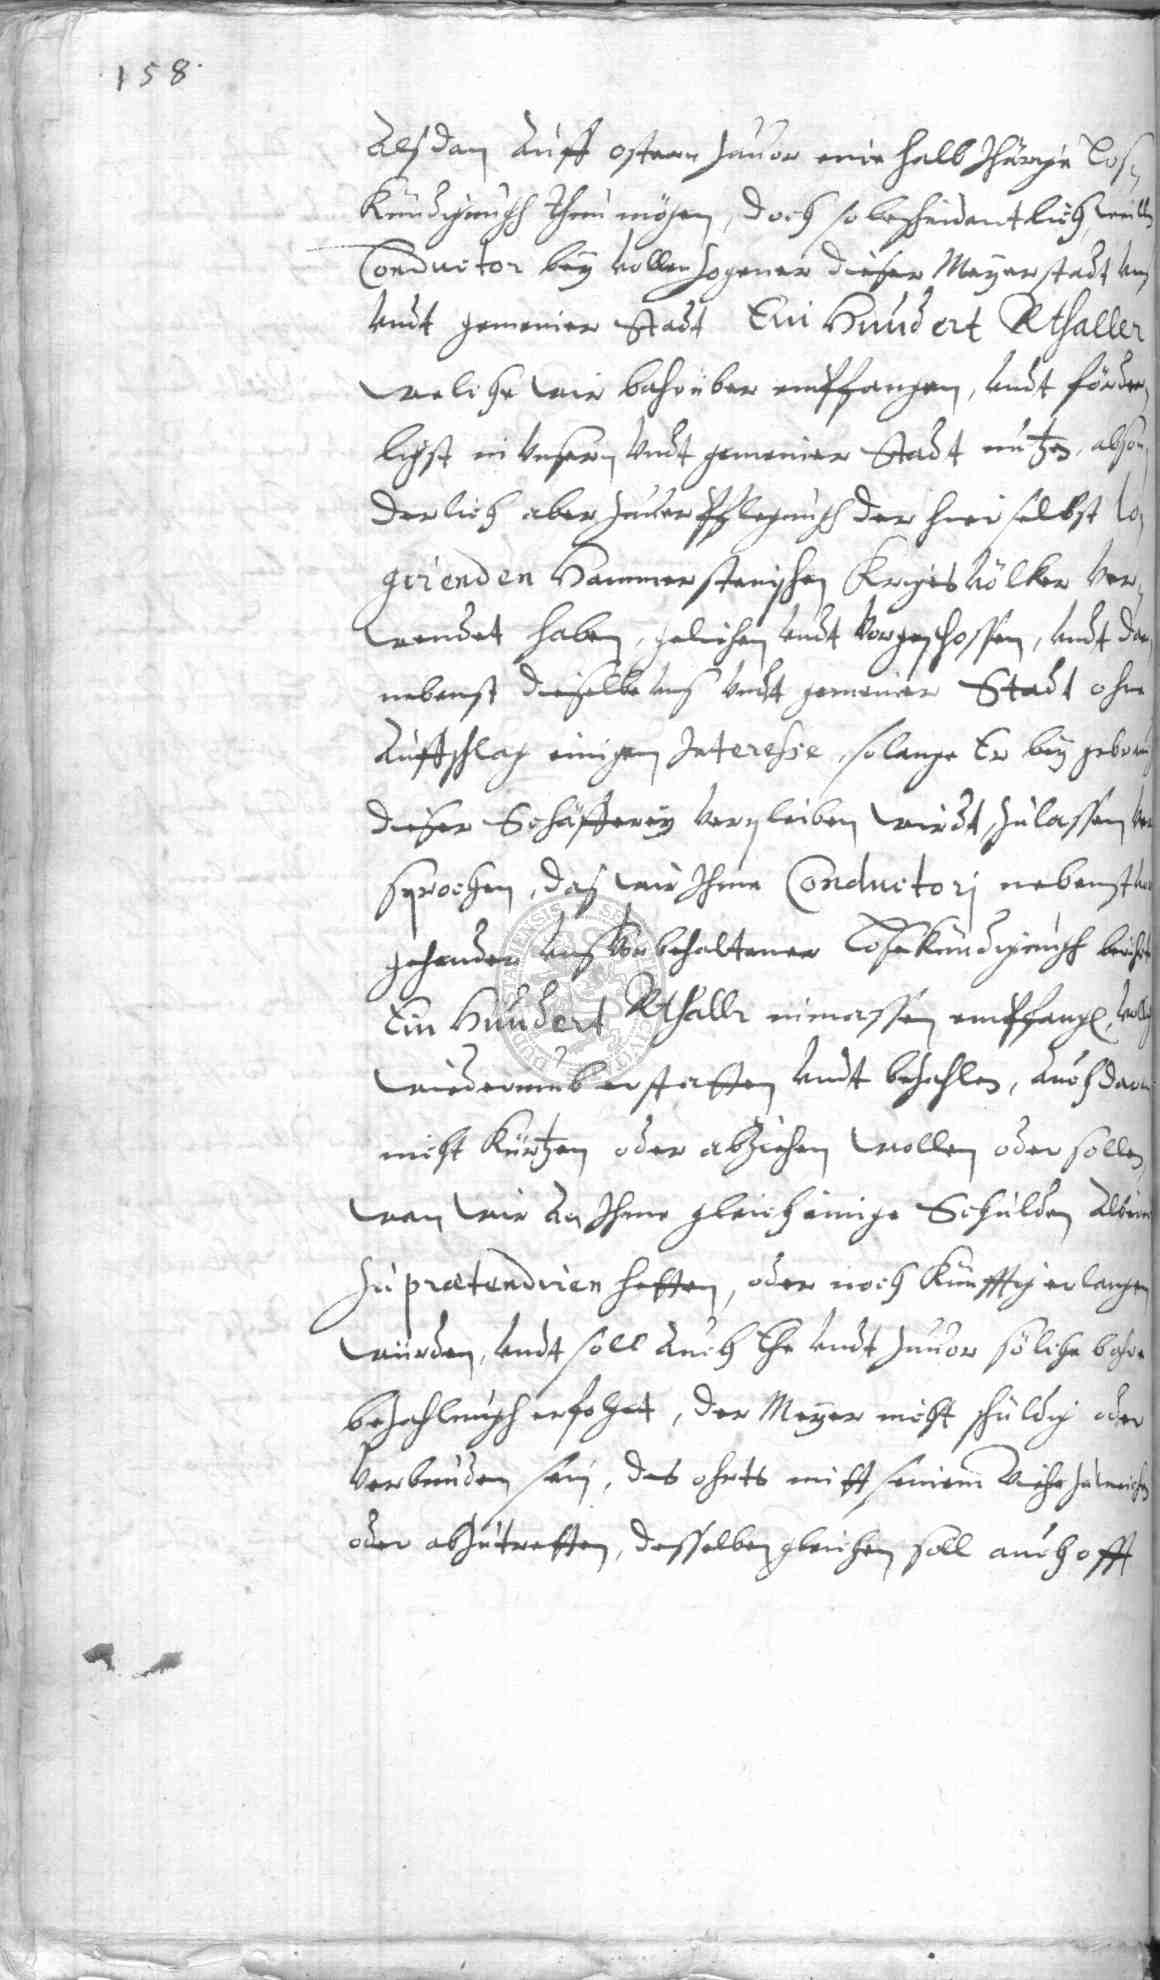 158.
Alßdan Auff ostern zuuor eine halb Jhärige Loß-
Kündigungh thun mögen, doch so bescheidentlich, weill
Conductor bey vollenzogener dieser Meyerstadt Uns
Undt gemeiner Stadt Ein Hundert Rthaller
welche wir bahr über empffangen, Undt förder-
ligst in Unsern Undt gemeiner Stadt nutzen, abson-
derlich aber zuuerpflegungh der hieselbst lo-
girenden Hammersteinischen Kriges Völker ver-
wendet haben, gelichen Undt Vorgeschossen, Undt dar
nebenst dieselbe Uns Undt gemeiner Stadt ohne
Auffschlag einigen Interesse, solange Er bey gebrauch
dieser Schäfferey verpleiben wirdt, Zulassen ver
sprochen, daß wir Ihme Conductorj nebenst vor
gehender Uns Vorbehaltener Loßkündigungh berührte
Ein Hundert Rthallr inmassen empffangen, völlig
wiederumb erstatten Undt bezahlen, Auch daran
nicht Kürtzen oder abziehen wollen oder sollen,
wan wir An Ihme gleich einige Schulden Alberei
Zu prætendiren hetten, oder noch Künfftig erlangen
würden, Undt soll Auch Ehe Undt Zuuor solche bahre
bezahlungh erfolget, der Meyer nicht schuldig oder
Verbunden sein, des ohrts mitt seinem Viehe zuweichen
oder abzutretten, desselben gleichen soll auch offt